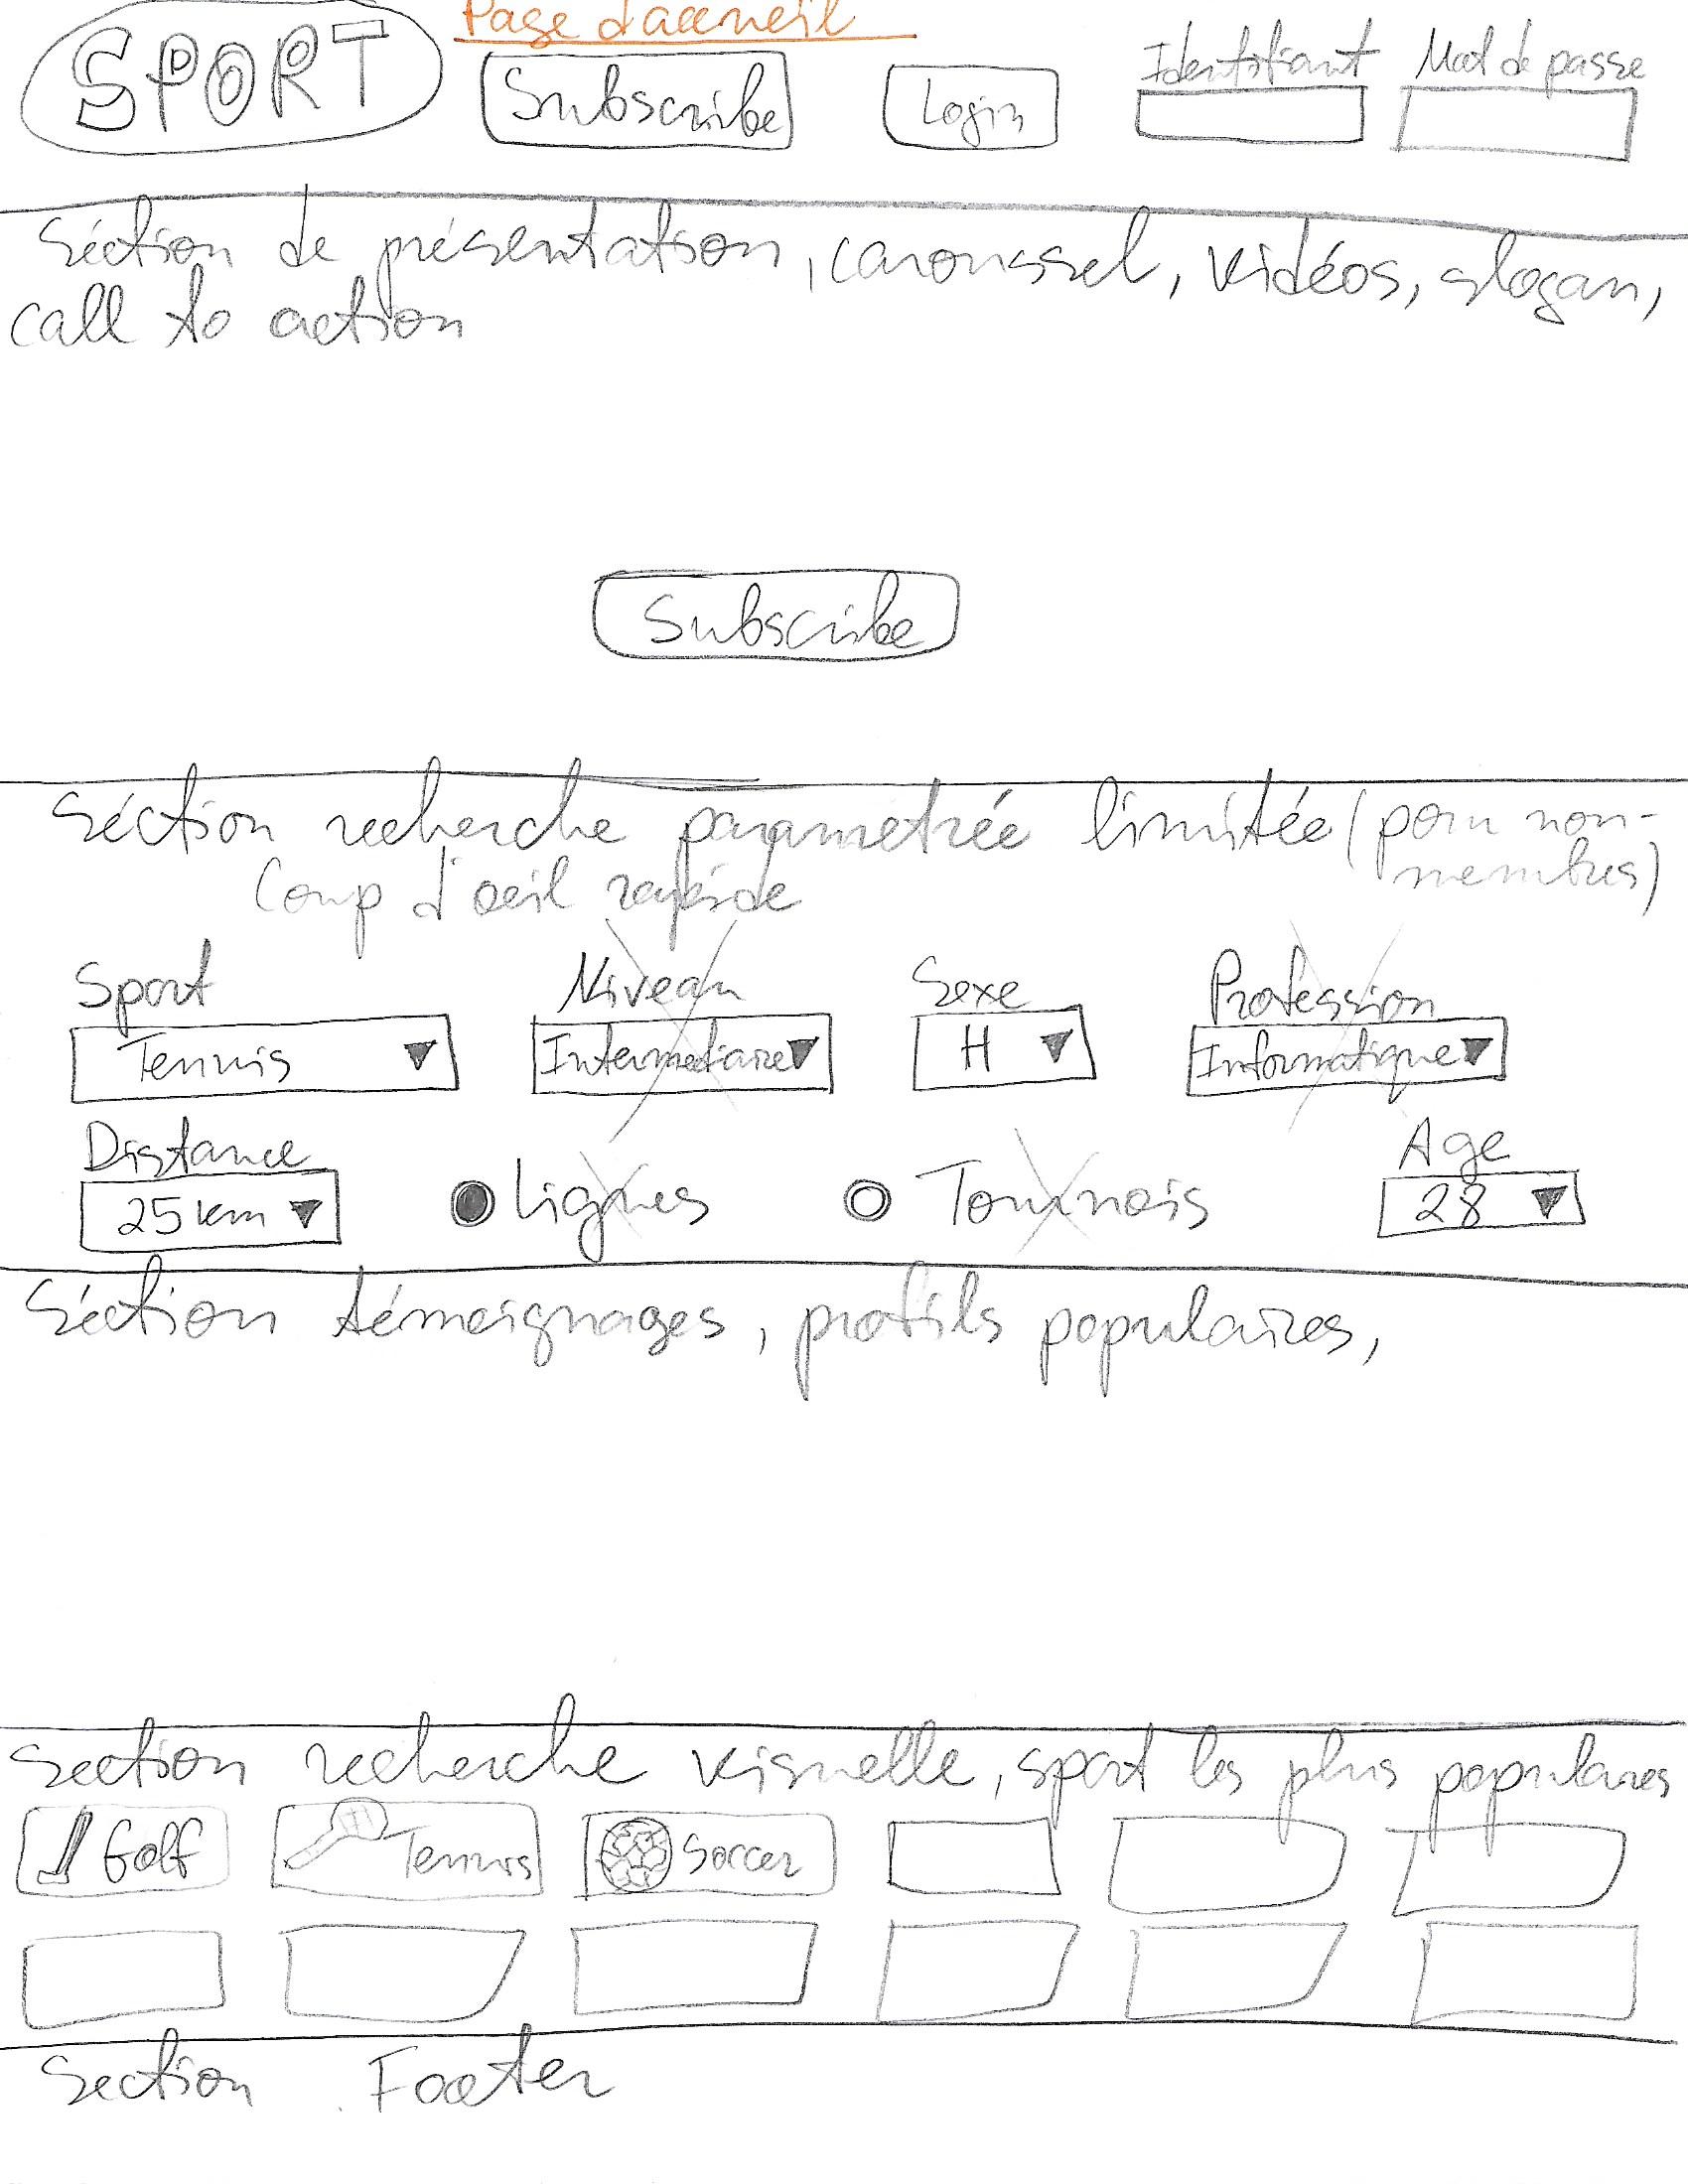 Page d'accueil
SPORT
Subscribe
Login
Identifiant
Mot de passe
Séction de présentation, caroussel, vidéos, slogan,
call to action
Subscribe
Séction recherche parametrée limitée (pour non-
membres)
Coup d'oeil rapide
Sport
Niveau
Sexe
Profession
Tennis
Intermediaire
H
Informatique
Distance
Age
25 km
Lignes
Tournois
28
Séction témoignages, profils populaires,
Section recherche visuelle, sport les plus populaires
Golf
Tennis
Soccer
Section Footer